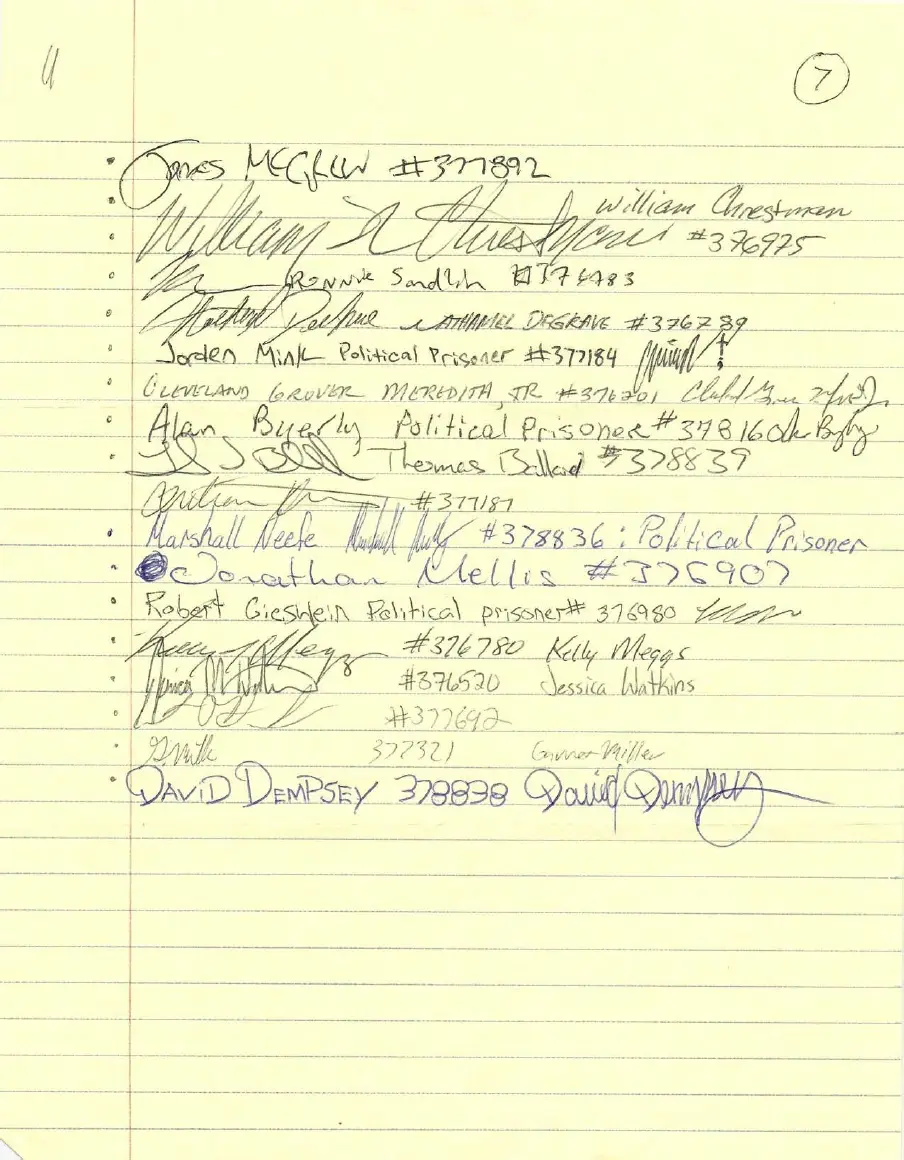 7
James McGrew #377892
William Chrestman
William Chrestman
#376975
Ronnie Sandlin
NATHANIEL DEGRAVE #376789
Jorden Mink Political Prisoner #377184
CLEVELAND GROVER MEREDITH, JR #376201
Alan Byerly Political Prisoner #378160
Thomas Ballard #378839
#377187
Marshall Neefe #378836 : Political Prisoner
Jonathan Mellis #376907
Robert Gieswein Political prisoner# 376980
#376780 Kelly Meggs
#376520 Jessica Watkins
#377692
377321 Garret Miller
DAVID DEMPSEY 378838 David Dempsey